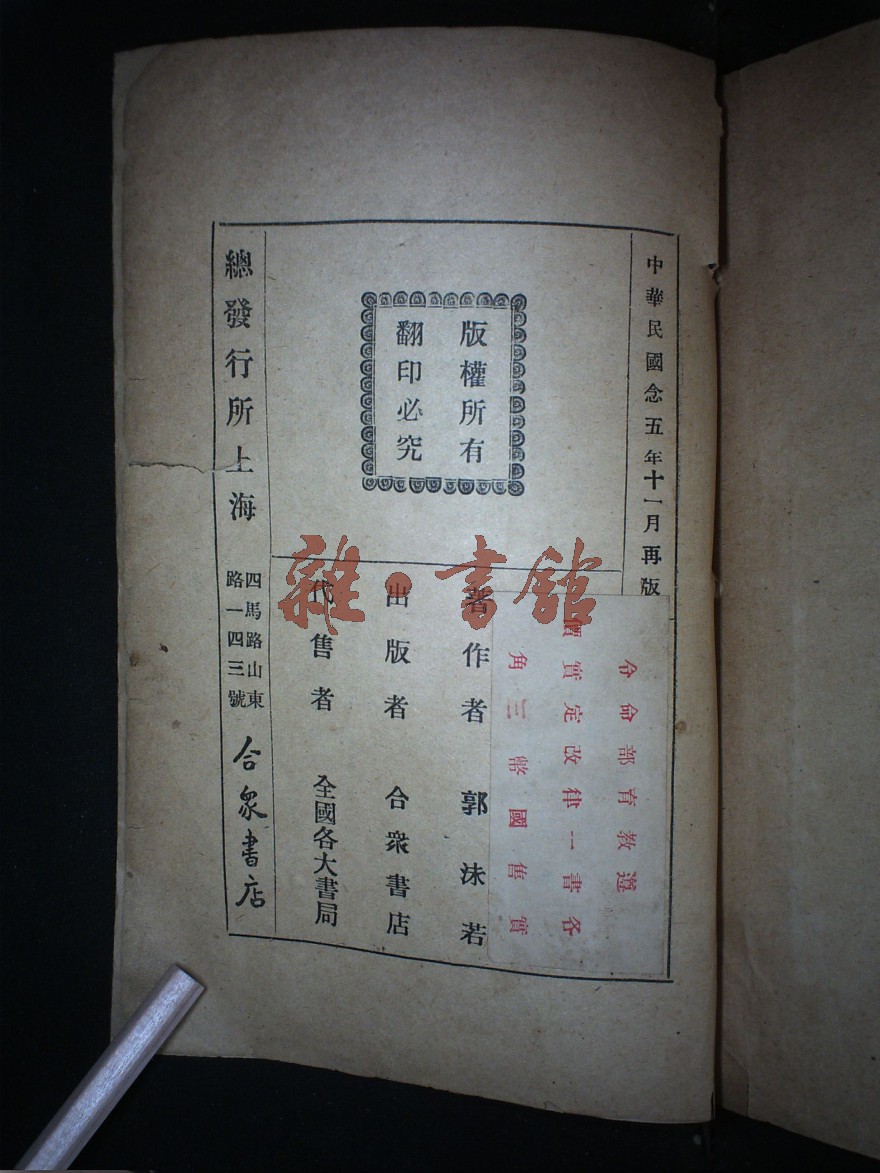 中華民國念五年十一月再版
版權所有
翻印必究
著作者 郭沫若
出版者 合衆書店
代售者 全國各大書局
總發行所上海 四馬路山東路一四三號 合衆書店
遵教育部命令
各書一律改定實價
實售國幣三角
雜·書館